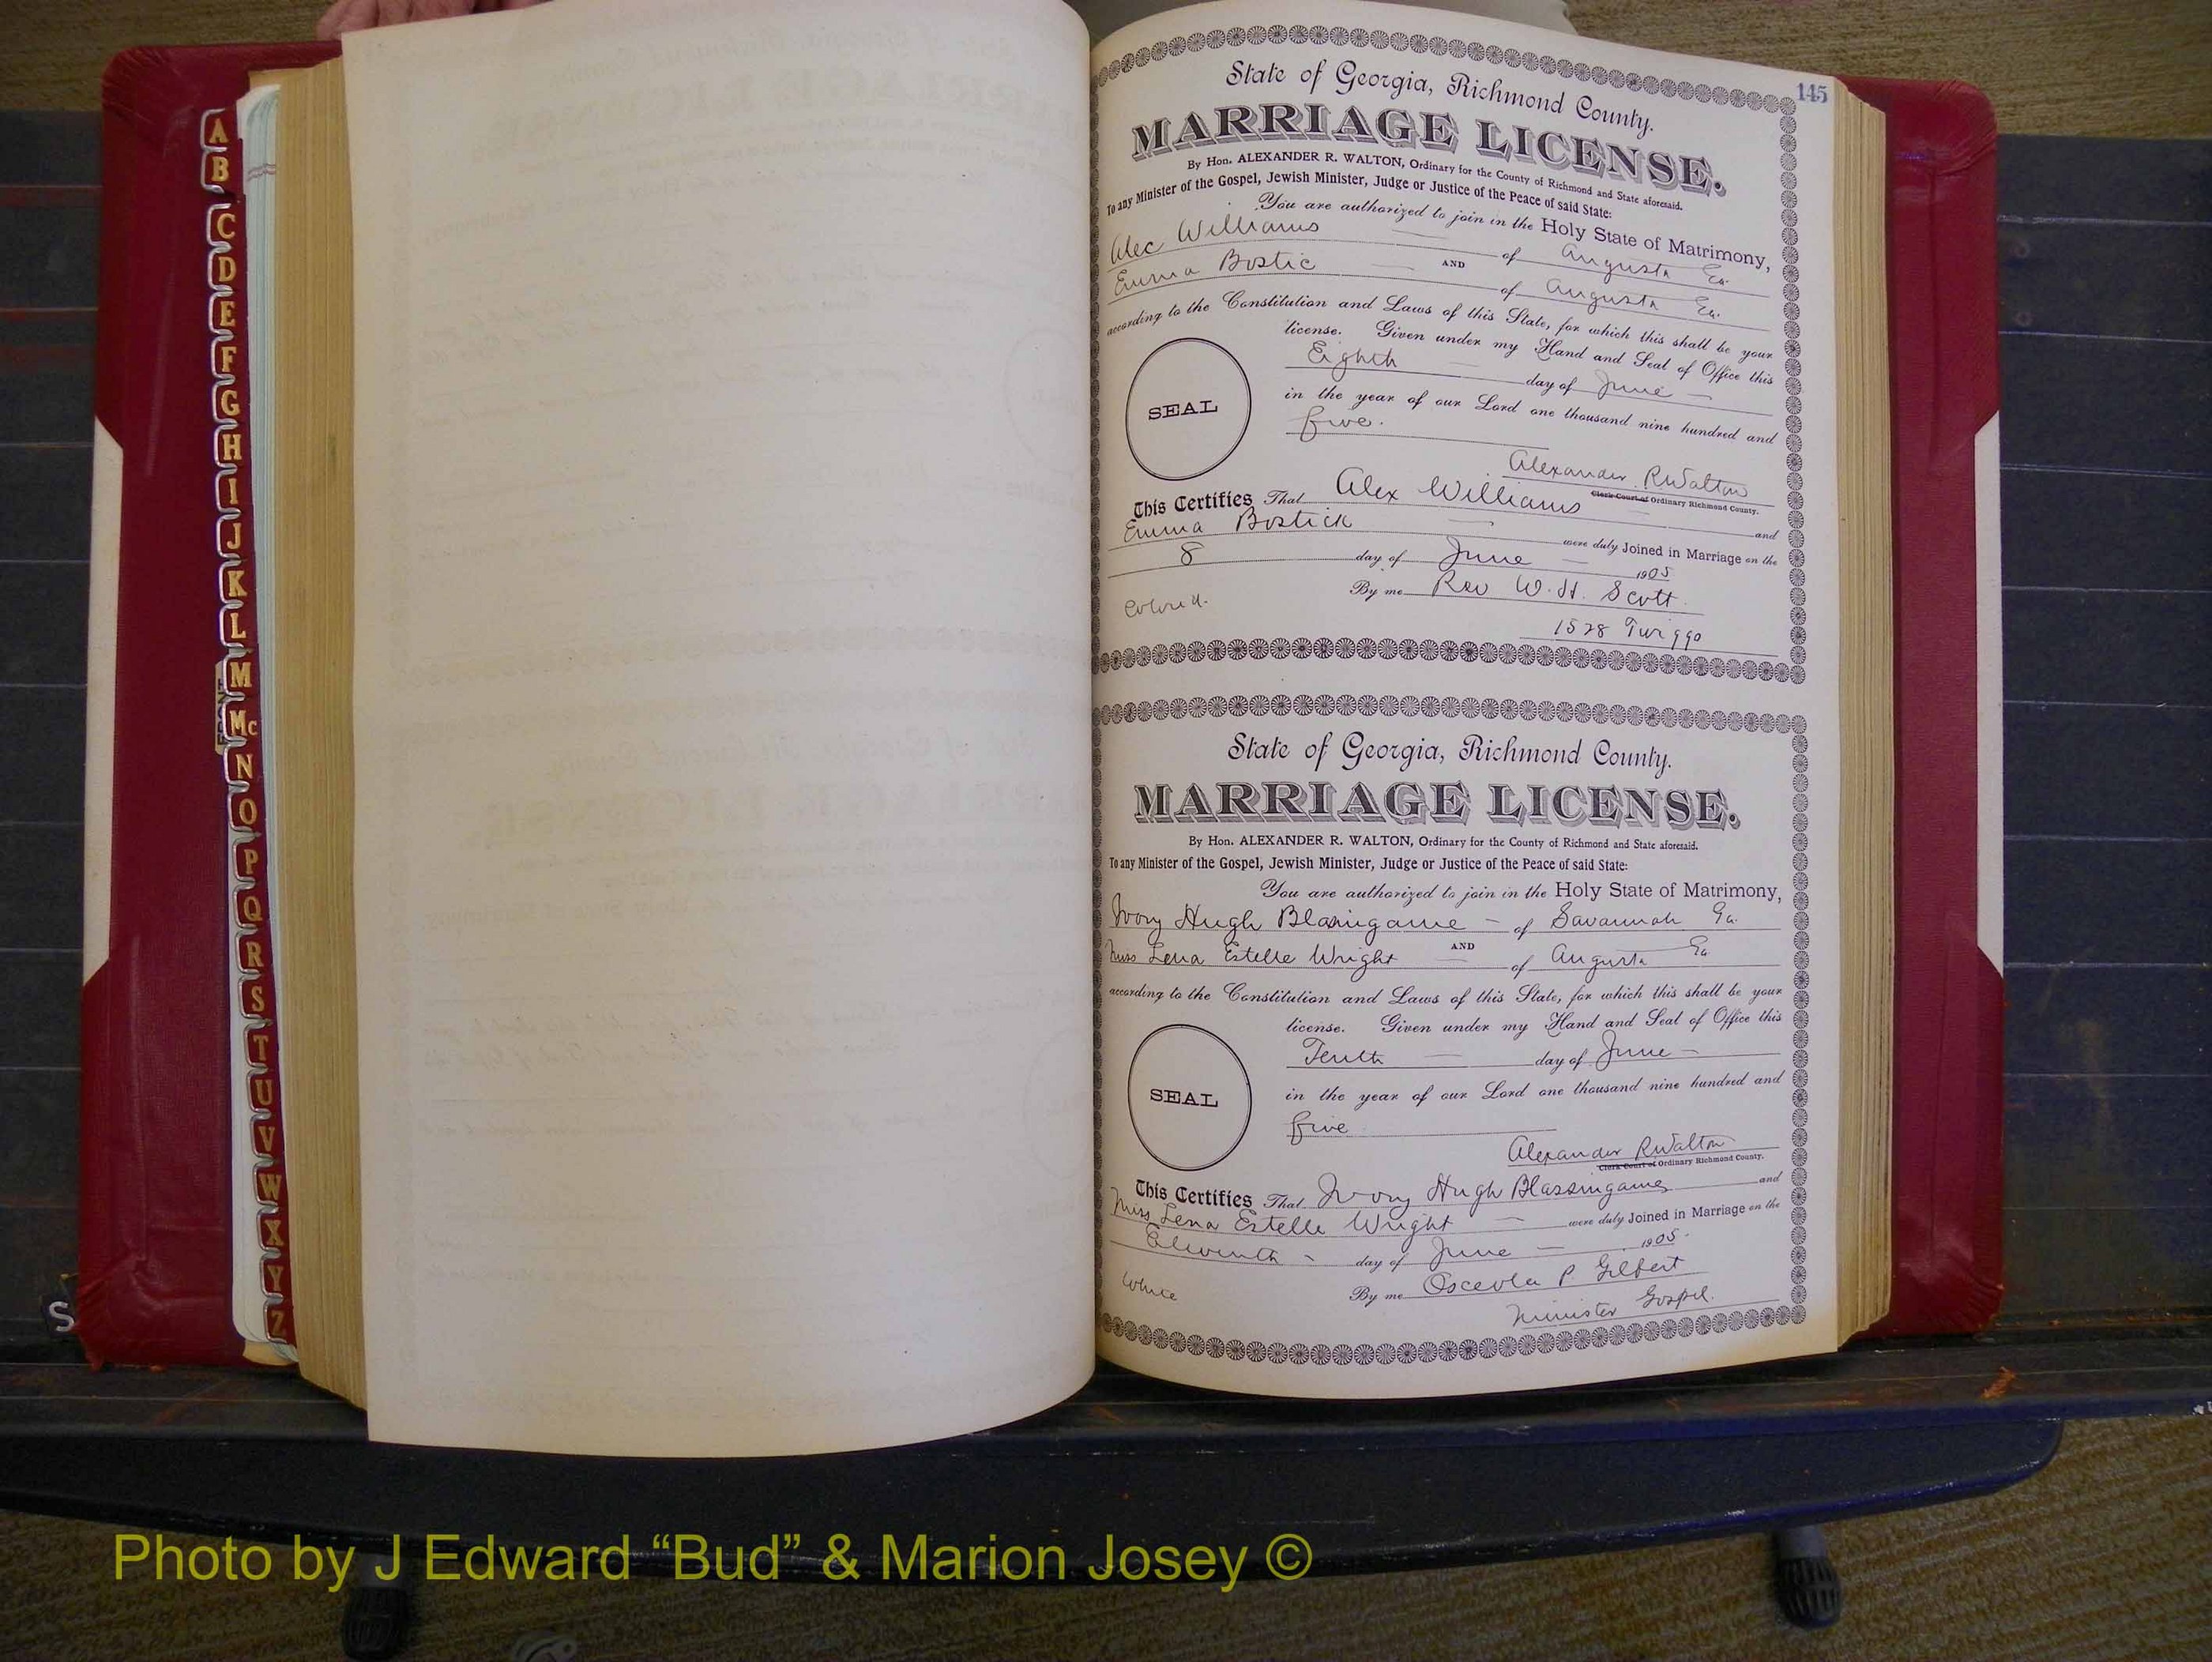 A
B
C
D
E
F
G
H
I
J
K
L
M
Mc
N
O
P
Q
R
S
T
U
V
W
X
Y
Z
S
145
State of Georgia, Richmond County.
MARRIAGE LICENSE.
By Hon. ALEXANDER R. WALTON, Ordinary for the County of Richmond and State aforesaid.
To any Minister of the Gospel, Jewish Minister, Judge or Justice of the Peace of said State:
You are authorized to join in the Holy State of Matrimony,
Alec Williams of Augusta Ga.
AND
Emma Bostic of Augusta Ga.
according to the Constitution and Laws of this State, for which this shall be your
license. Given under my Hand and Seal of Office this
Eighth day of June
SEAL
in the year of our Lord one thousand nine hundred and
five.
Alexander R Walton
Clerk Court of Ordinary Richmond County.
This Certifies That Alex Williams and
Emma Bostick were duly Joined in Marriage on the
8 day of June 1905
Colored. By me Rev W. H. Scott
1528 Twiggs
State of Georgia, Richmond County.
MARRIAGE LICENSE.
By Hon. ALEXANDER R. WALTON, Ordinary for the County of Richmond and State aforesaid.
To any Minister of the Gospel, Jewish Minister, Judge or Justice of the Peace of said State:
You are authorized to join in the Holy State of Matrimony,
Ivory Hugh Blasingame of Savannah Ga.
AND
Miss Lena Estelle Wright of Augusta Ga
according to the Constitution and Laws of this State, for which this shall be your
license. Given under my Hand and Seal of Office this
Tenth day of June
SEAL
in the year of our Lord one thousand nine hundred and
five
Alexander R Walton
Clerk Court of Ordinary Richmond County.
This Certifies That Ivory Hugh Blassingame and
Miss Lena Estelle Wright were duly Joined in Marriage on the
Eleventh day of June 1905.
White By me Osceola P Gilbert
Minister Gospel.
Photo by J Edward “Bud” & Marion Josey ©